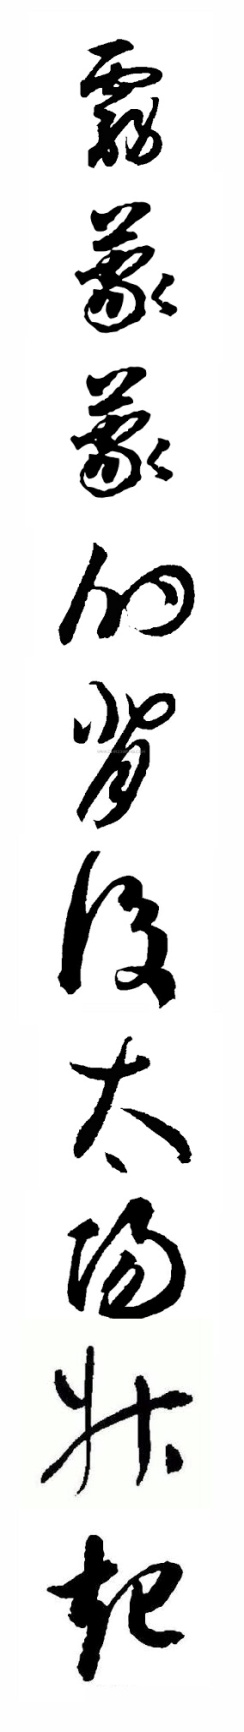 霧蒙蒙的背後太陽升起